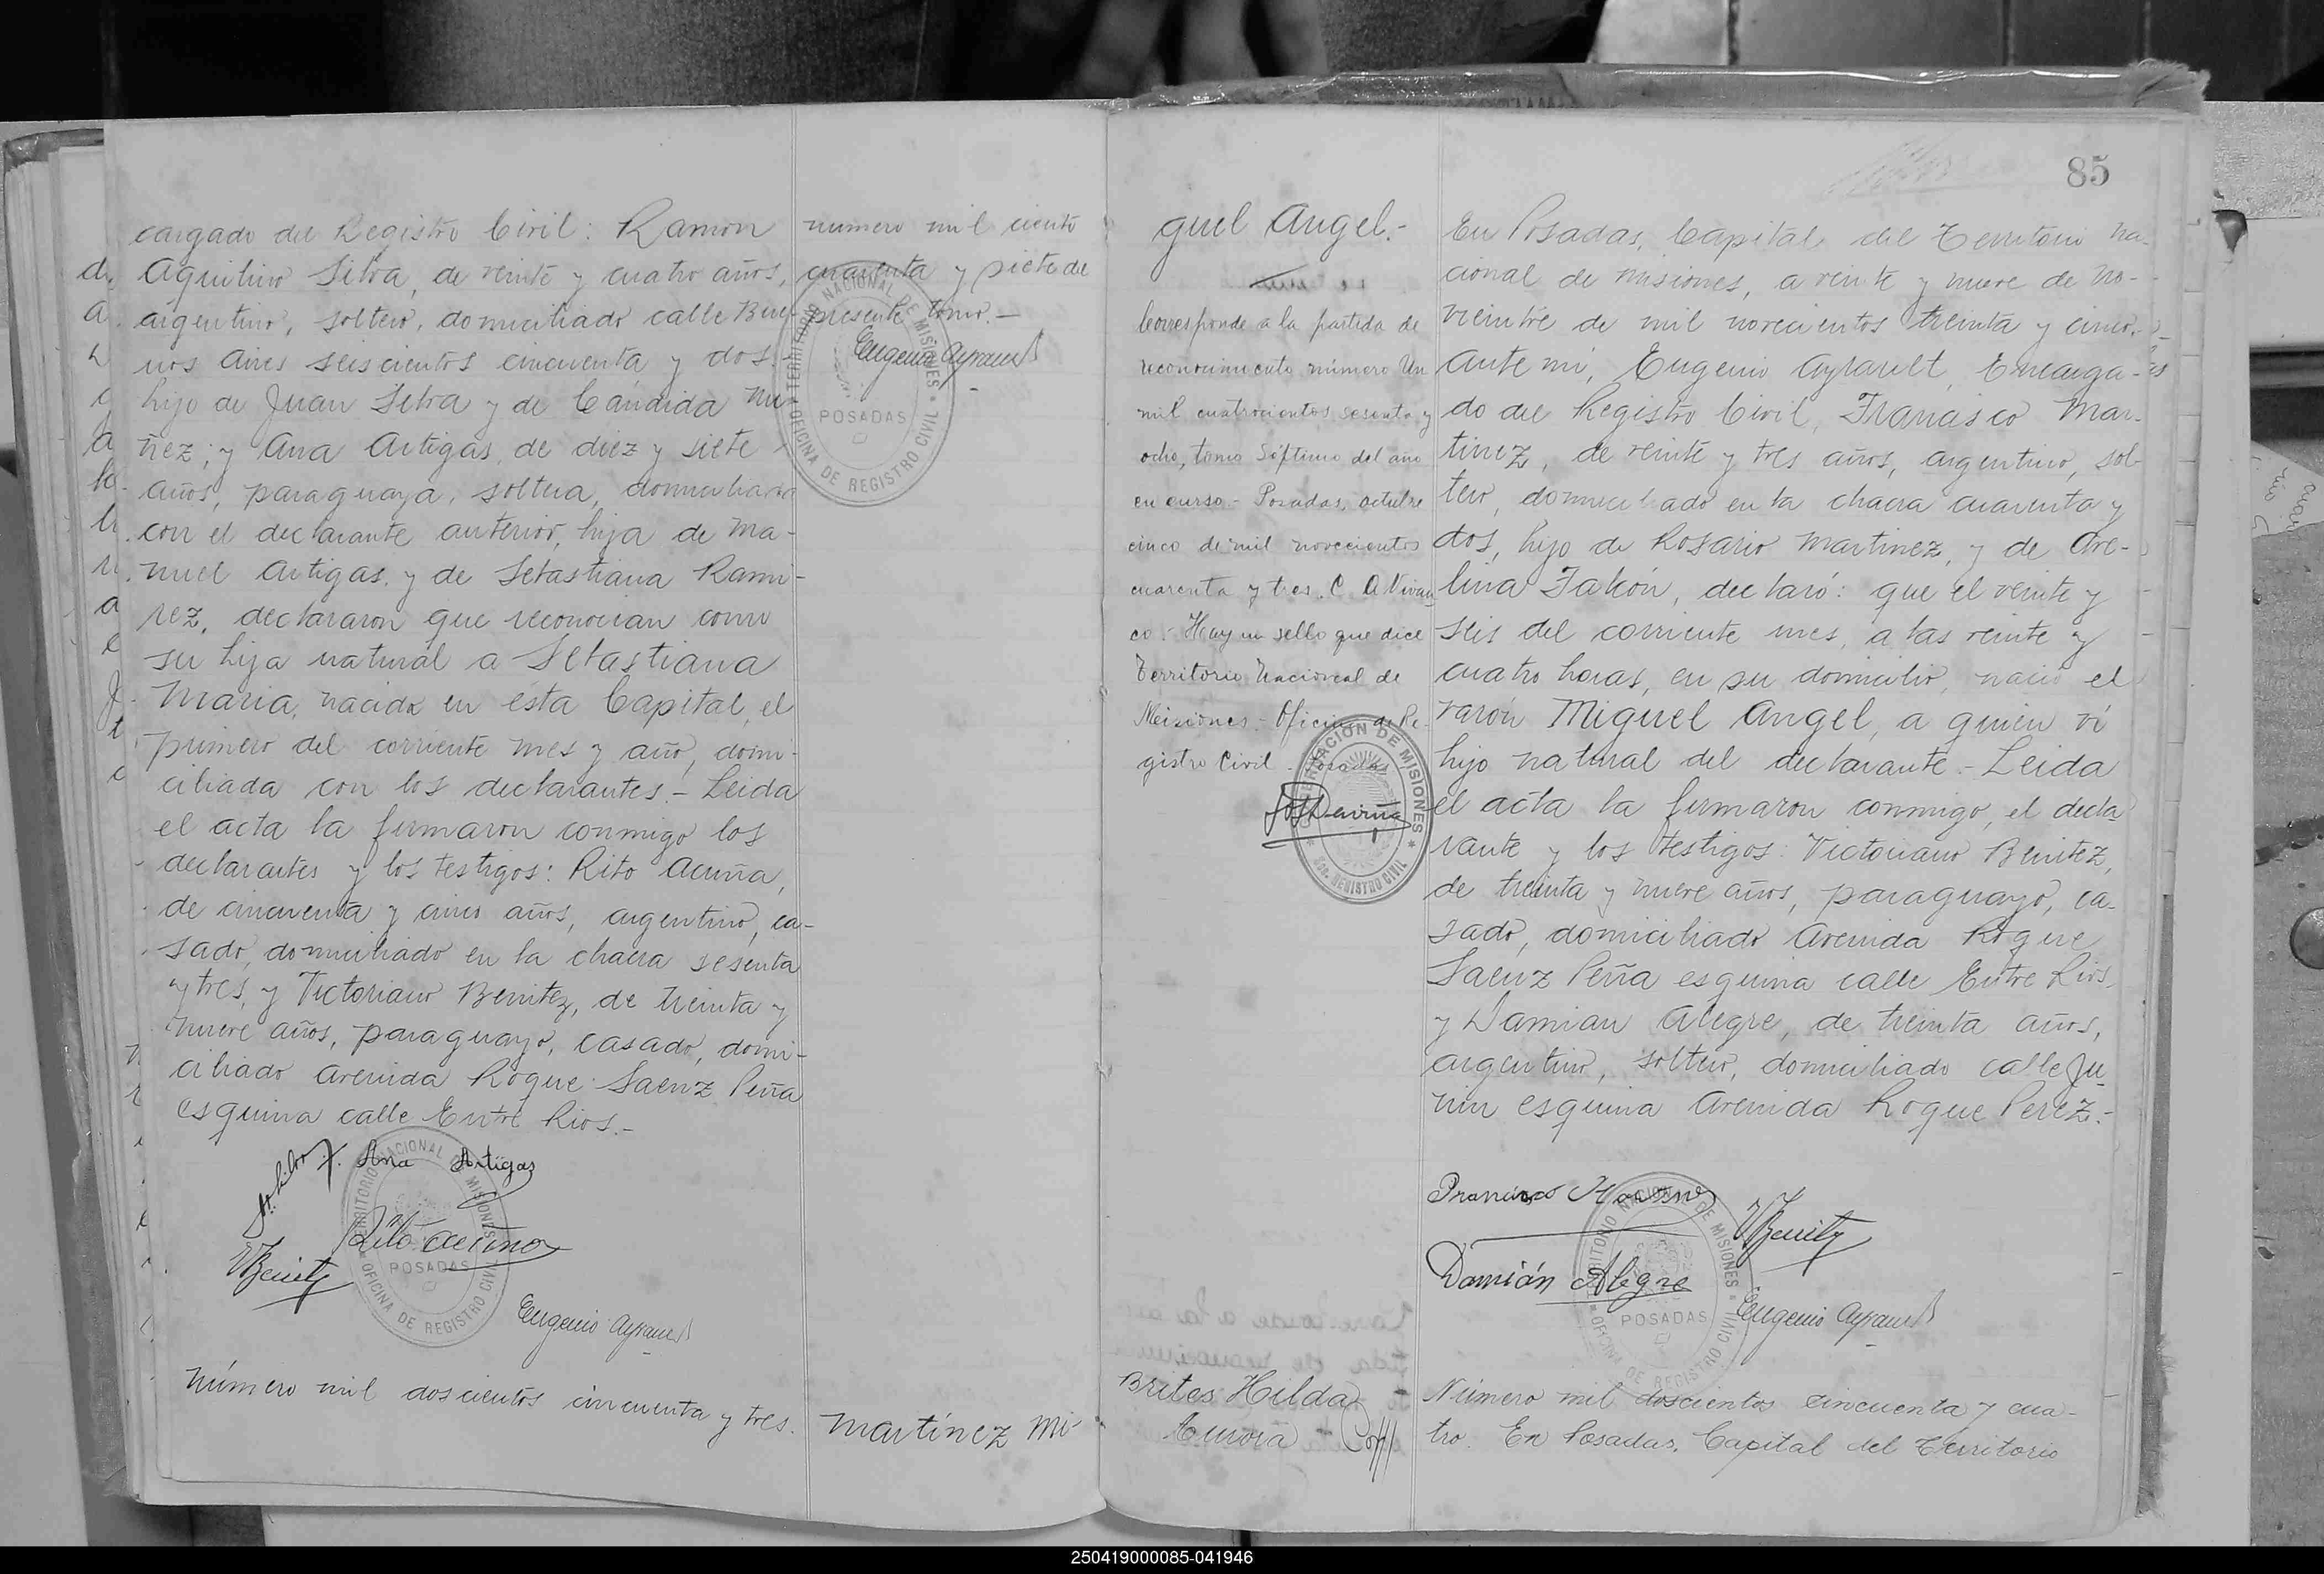 cargado del Registro Civil: Ramon
Aquilino Silva, de veinte y cuatro años,
argentino, soltero, domiciliado calle Bue-
nos Aires seiscientos cincuenta y dos,
hijo de Juan Silva y de Cándida Nu-
ñez; y Ana Artigas, de diez y siete
años, paraguaya, soltera, domiciliada
con el declarante anterior, hija de Ma-
nuel Artigas, y de Sebastiana Rami-
rez, declararon que reconocian como
su hija natural a Sebastiana
Maria, nacida en esta Capital, el
primero del corriente mes y año, domi-
ciliada con los declarantes.- Leida
el acta la firmaron conmigo los
declarantes y los testigos: Rito Acuña,
de cincuenta y cinco años, argentino, ca-
sado, domiciliado en la chacra sesenta
y tres, y Victoriano Benitez, de treinta y
nueve años, paraguayo, casado, domi-
ciliado Avenida Roque Saenz Peña
esquina calle Entre Rios.-
Ana Artigas
Rito Acuña
VBenitz
Eugenio Ayrault
TERRITORIO NACIONAL DE MISIONES
POSADAS
OFICINA DE REGISTRO CIVIL
Número mil doscientos cincuenta y tres.
numero mil ciento
cuarenta y siete del
presente tomo.-
Eugenio Ayrault
TERRITORIO NACIONAL DE MISIONES
POSADAS
OFICINA DE REGISTRO CIVIL
Martínez Mi-
85
guel Angel.-
Corresponde a la partida de
reconocimiento número Un
mil cuatrocientos sesenta y
ocho, tomo Séptimo del año
en curso.- Posadas, octubre
cinco de mil novecientos
cuarenta y tres. C. A Vivan
co.- Hay un sello que dice
Territorio Nacional de
Misiones.- Oficina de Re-
gistro Civil.
GOBERNACIÓN DE MISIONES
REGISTRO CIVIL
En Posadas, Capital del Territorio Na-
cional de Misiones, a veinte y nueve de no-
viembre de mil novecientos treinta y cinco,
ante mi, Eugenio Ayrault, Encarga-
do del Registro Civil, Francisco Mar-
tinez, de veinte y tres años, argentino, sol-
tero, domiciliado en la chacra cuarenta y
dos, hijo de Rosario Martinez, y de Ave-
lina Falcón, declaró: que el veinte y
seis del corriente mes, a las veinte y
cuatro horas, en su domicilio, nació el
varón Miguel Angel, a quien vi
hijo natural del declarante.- Leida
el acta la firmaron conmigo, el decla
rante y los testigos: Victoriano Benitez,
de treinta y nueve años, paraguayo, ca-
sado, domiciliado Avenida Roque
Saenz Peña esquina calle Entre Rios,
y Damian Alegre, de treinta años,
argentino, soltero, domiciliado calle Ju-
nin esquina Avenida Roque Perez.-
VBenitz
Damián Alegre
Eugenio Ayrault
TERRITORIO NACIONAL DE MISIONES
POSADAS
OFICINA DE REGISTRO CIVIL
Brites Hilda
Aurora
Número mil doscientos cincuenta y cua-
tro. En Posadas, Capital del Territorio
250419000085-041946